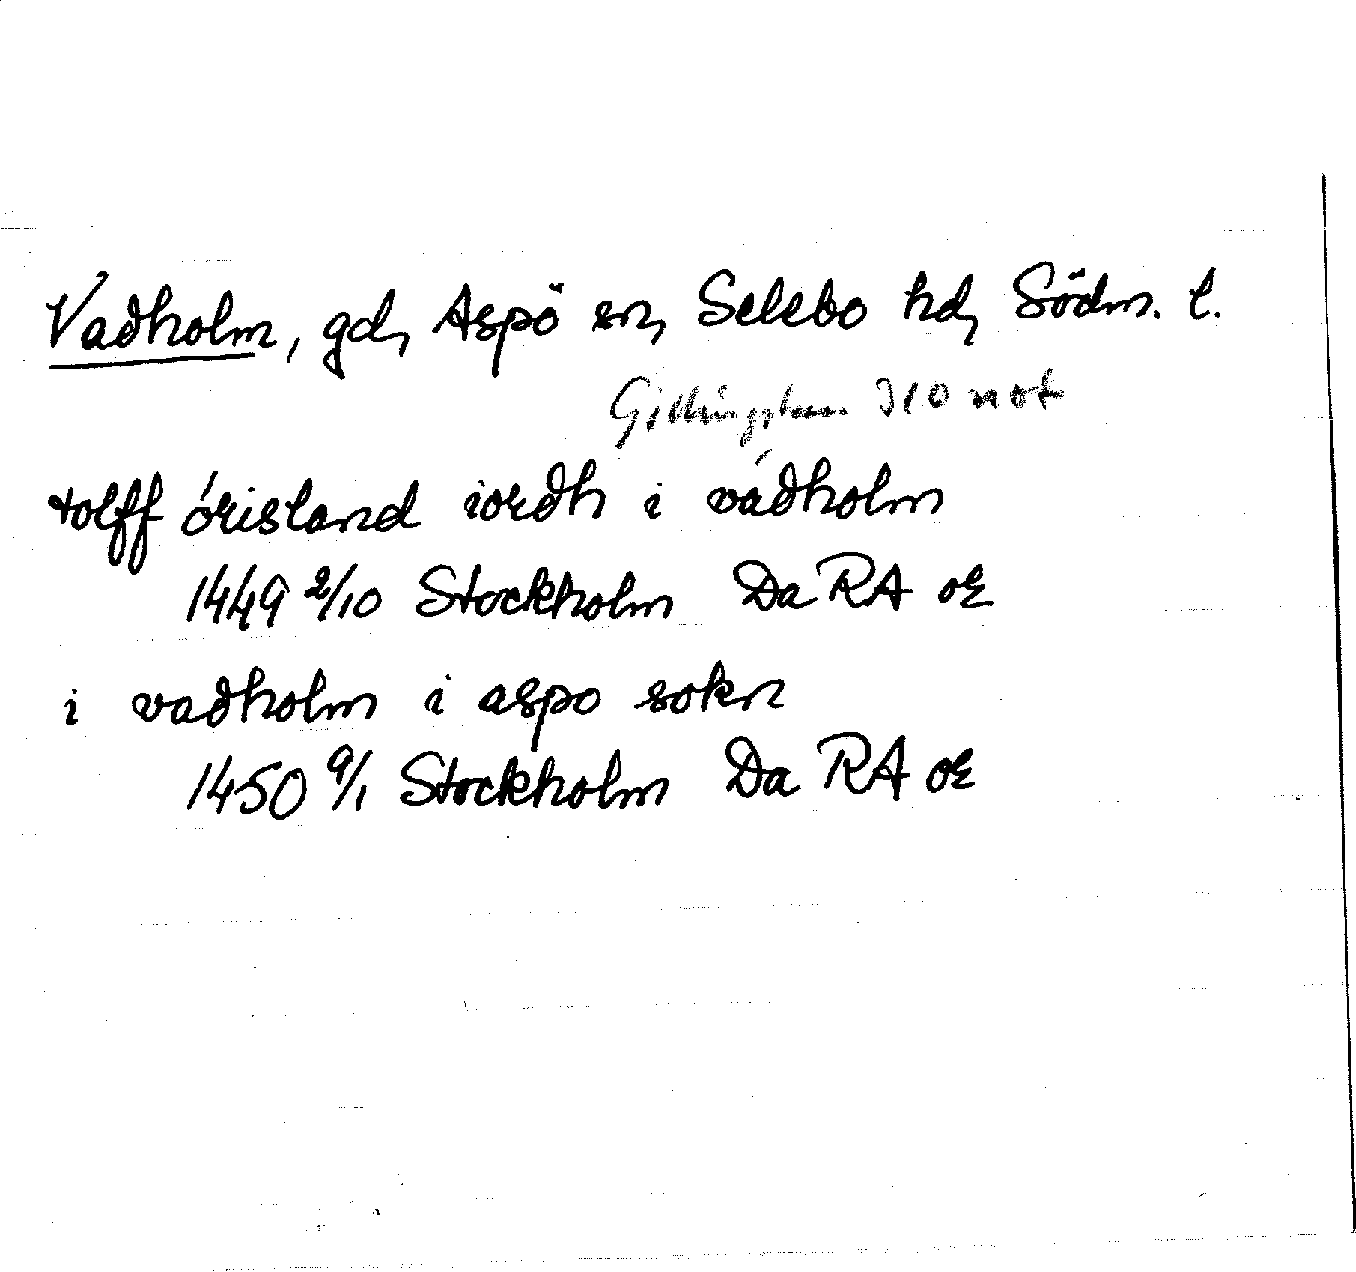 Vadholm, gd, Aspö sn, Selebo hd, Södm. l.
310 not
tolff órisland iordh i vádholm
1449 2/10 Stockholm Da RA or
i vadholm i aspo sokn
1450 9/1 Stockholm Da RA or